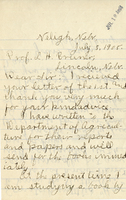 JUL 10 1905
Neligh, Nebr.
July 8, 1905.
Prof. L. H. Bruner
Lincoln, Nebr.
Dear Sir:- I received
your letter of the 1st.
thank you very much
for your kind advice
I have written to the
Department of Agricul-
ture for their reports
and papers and will
send for the books immed-
iately.
At the present time I
am studying a book by